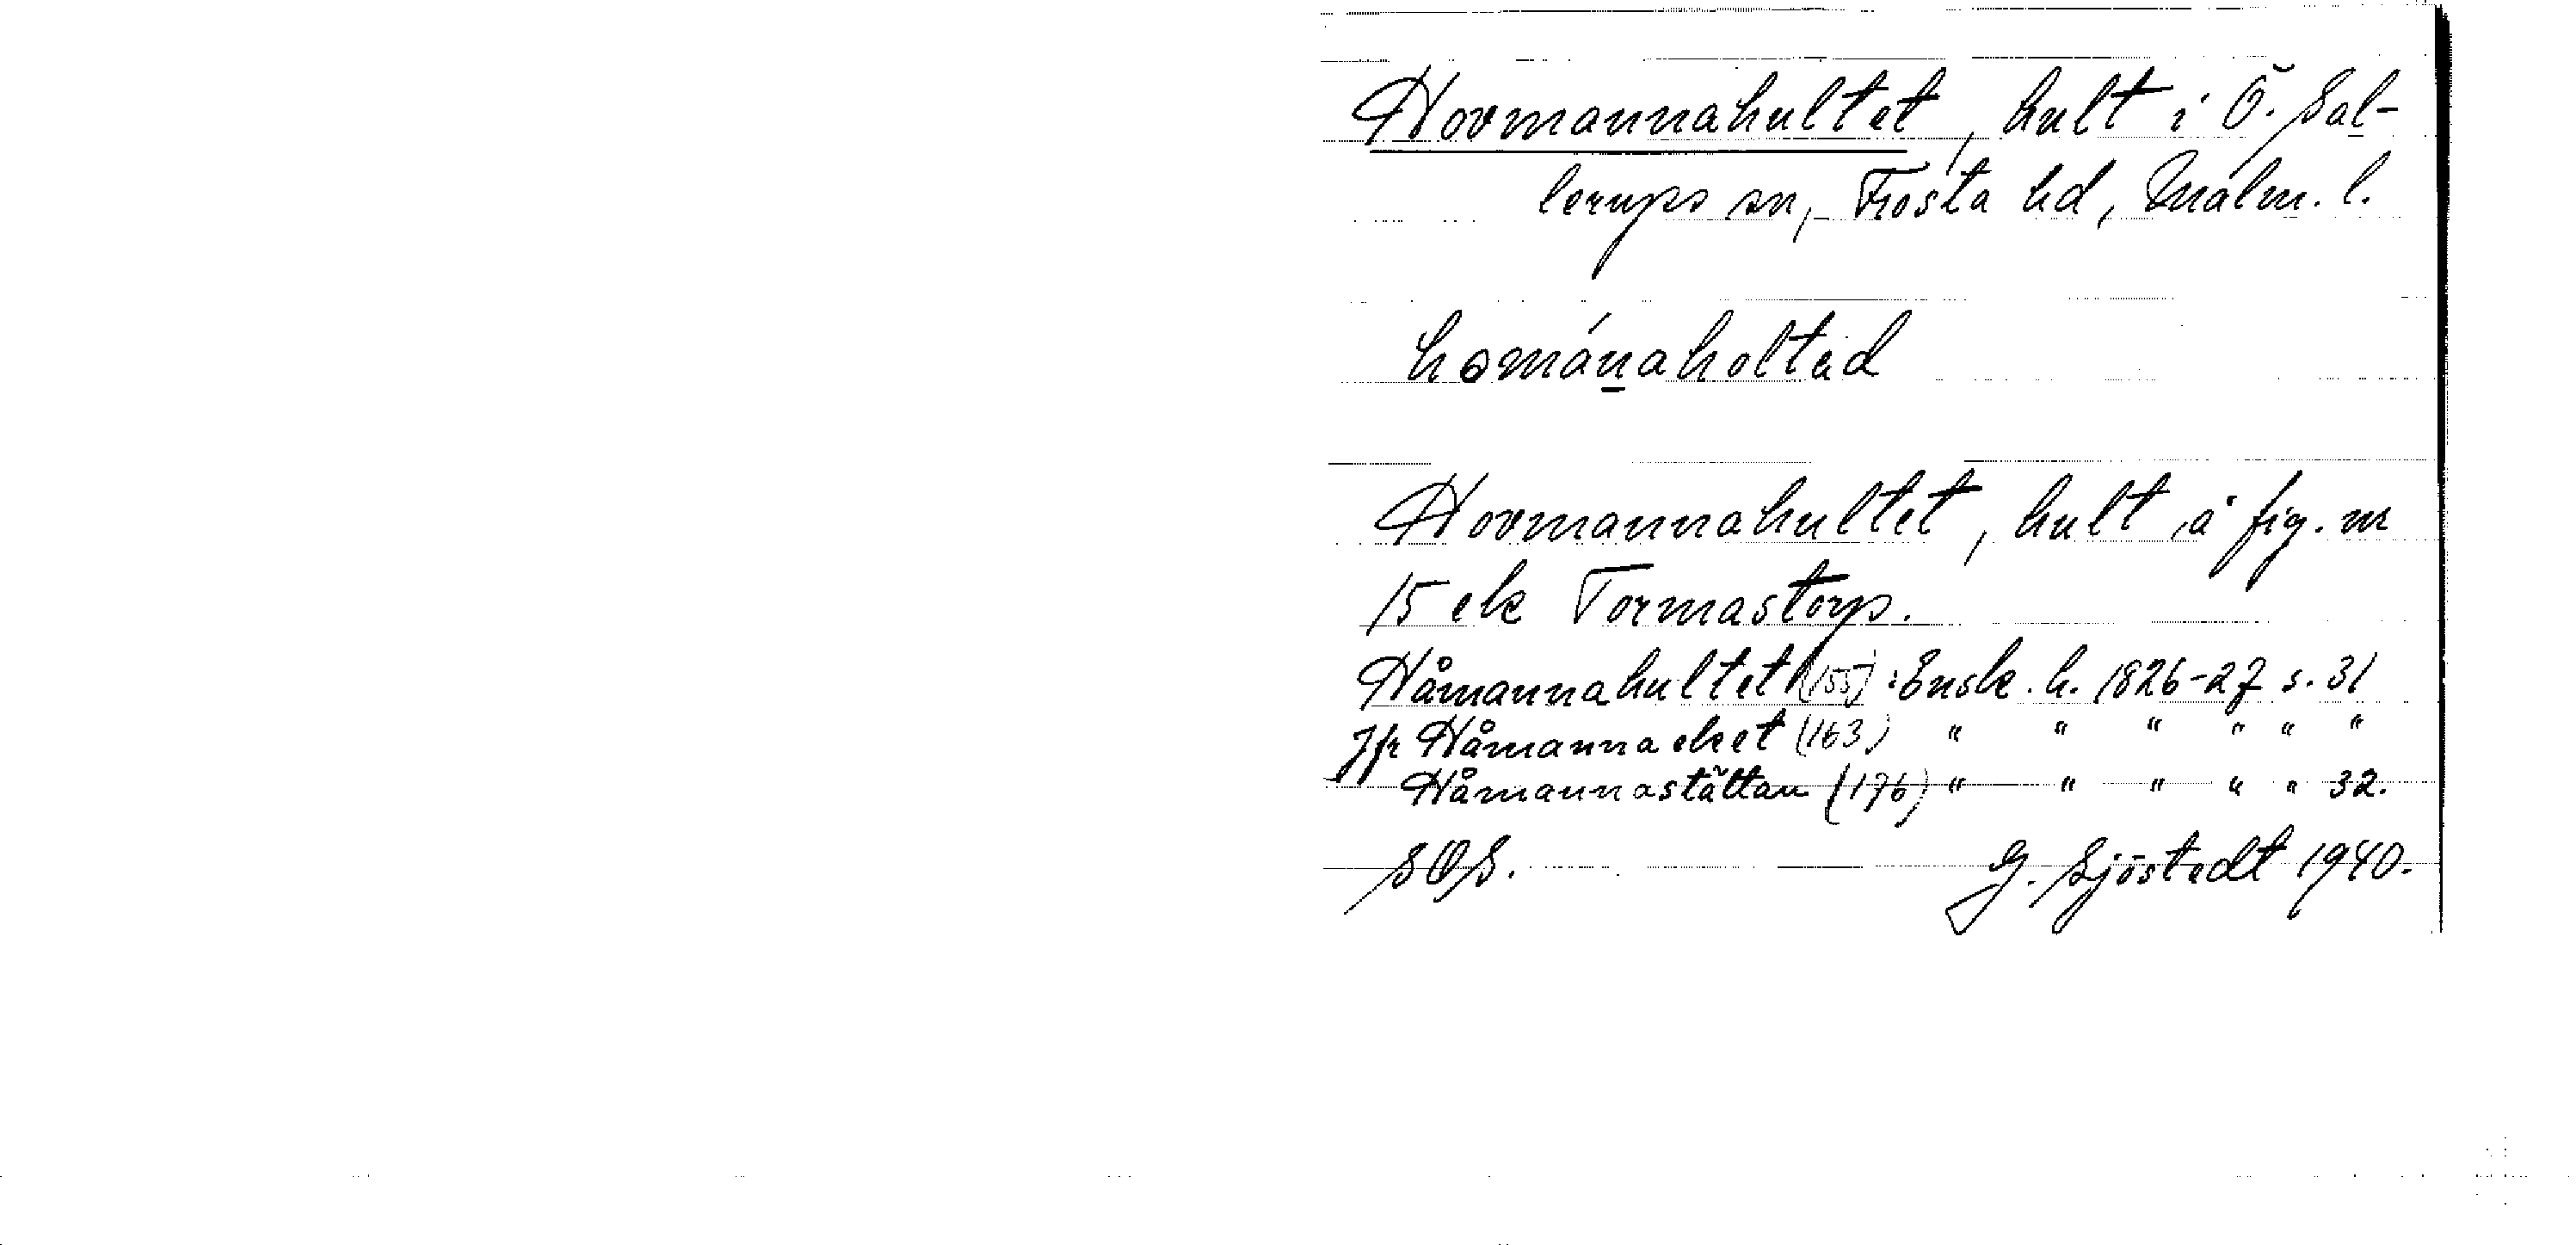 Hovmannahultet, hult i Ö. Sal-
lerups sn, Frosta hd, Malm. l.
hománaholtəd
Hovmannahultet, hult å fig. nr
15 ek Tormastorp.
Håmannahultet (155): Ensk. h. 1826-27 s. 31
Jfr Håmannaekeet (163) " " " " " "
Håmannastättan (176) " " " " " 32.
SOS. G. Sjöstedt 1940.